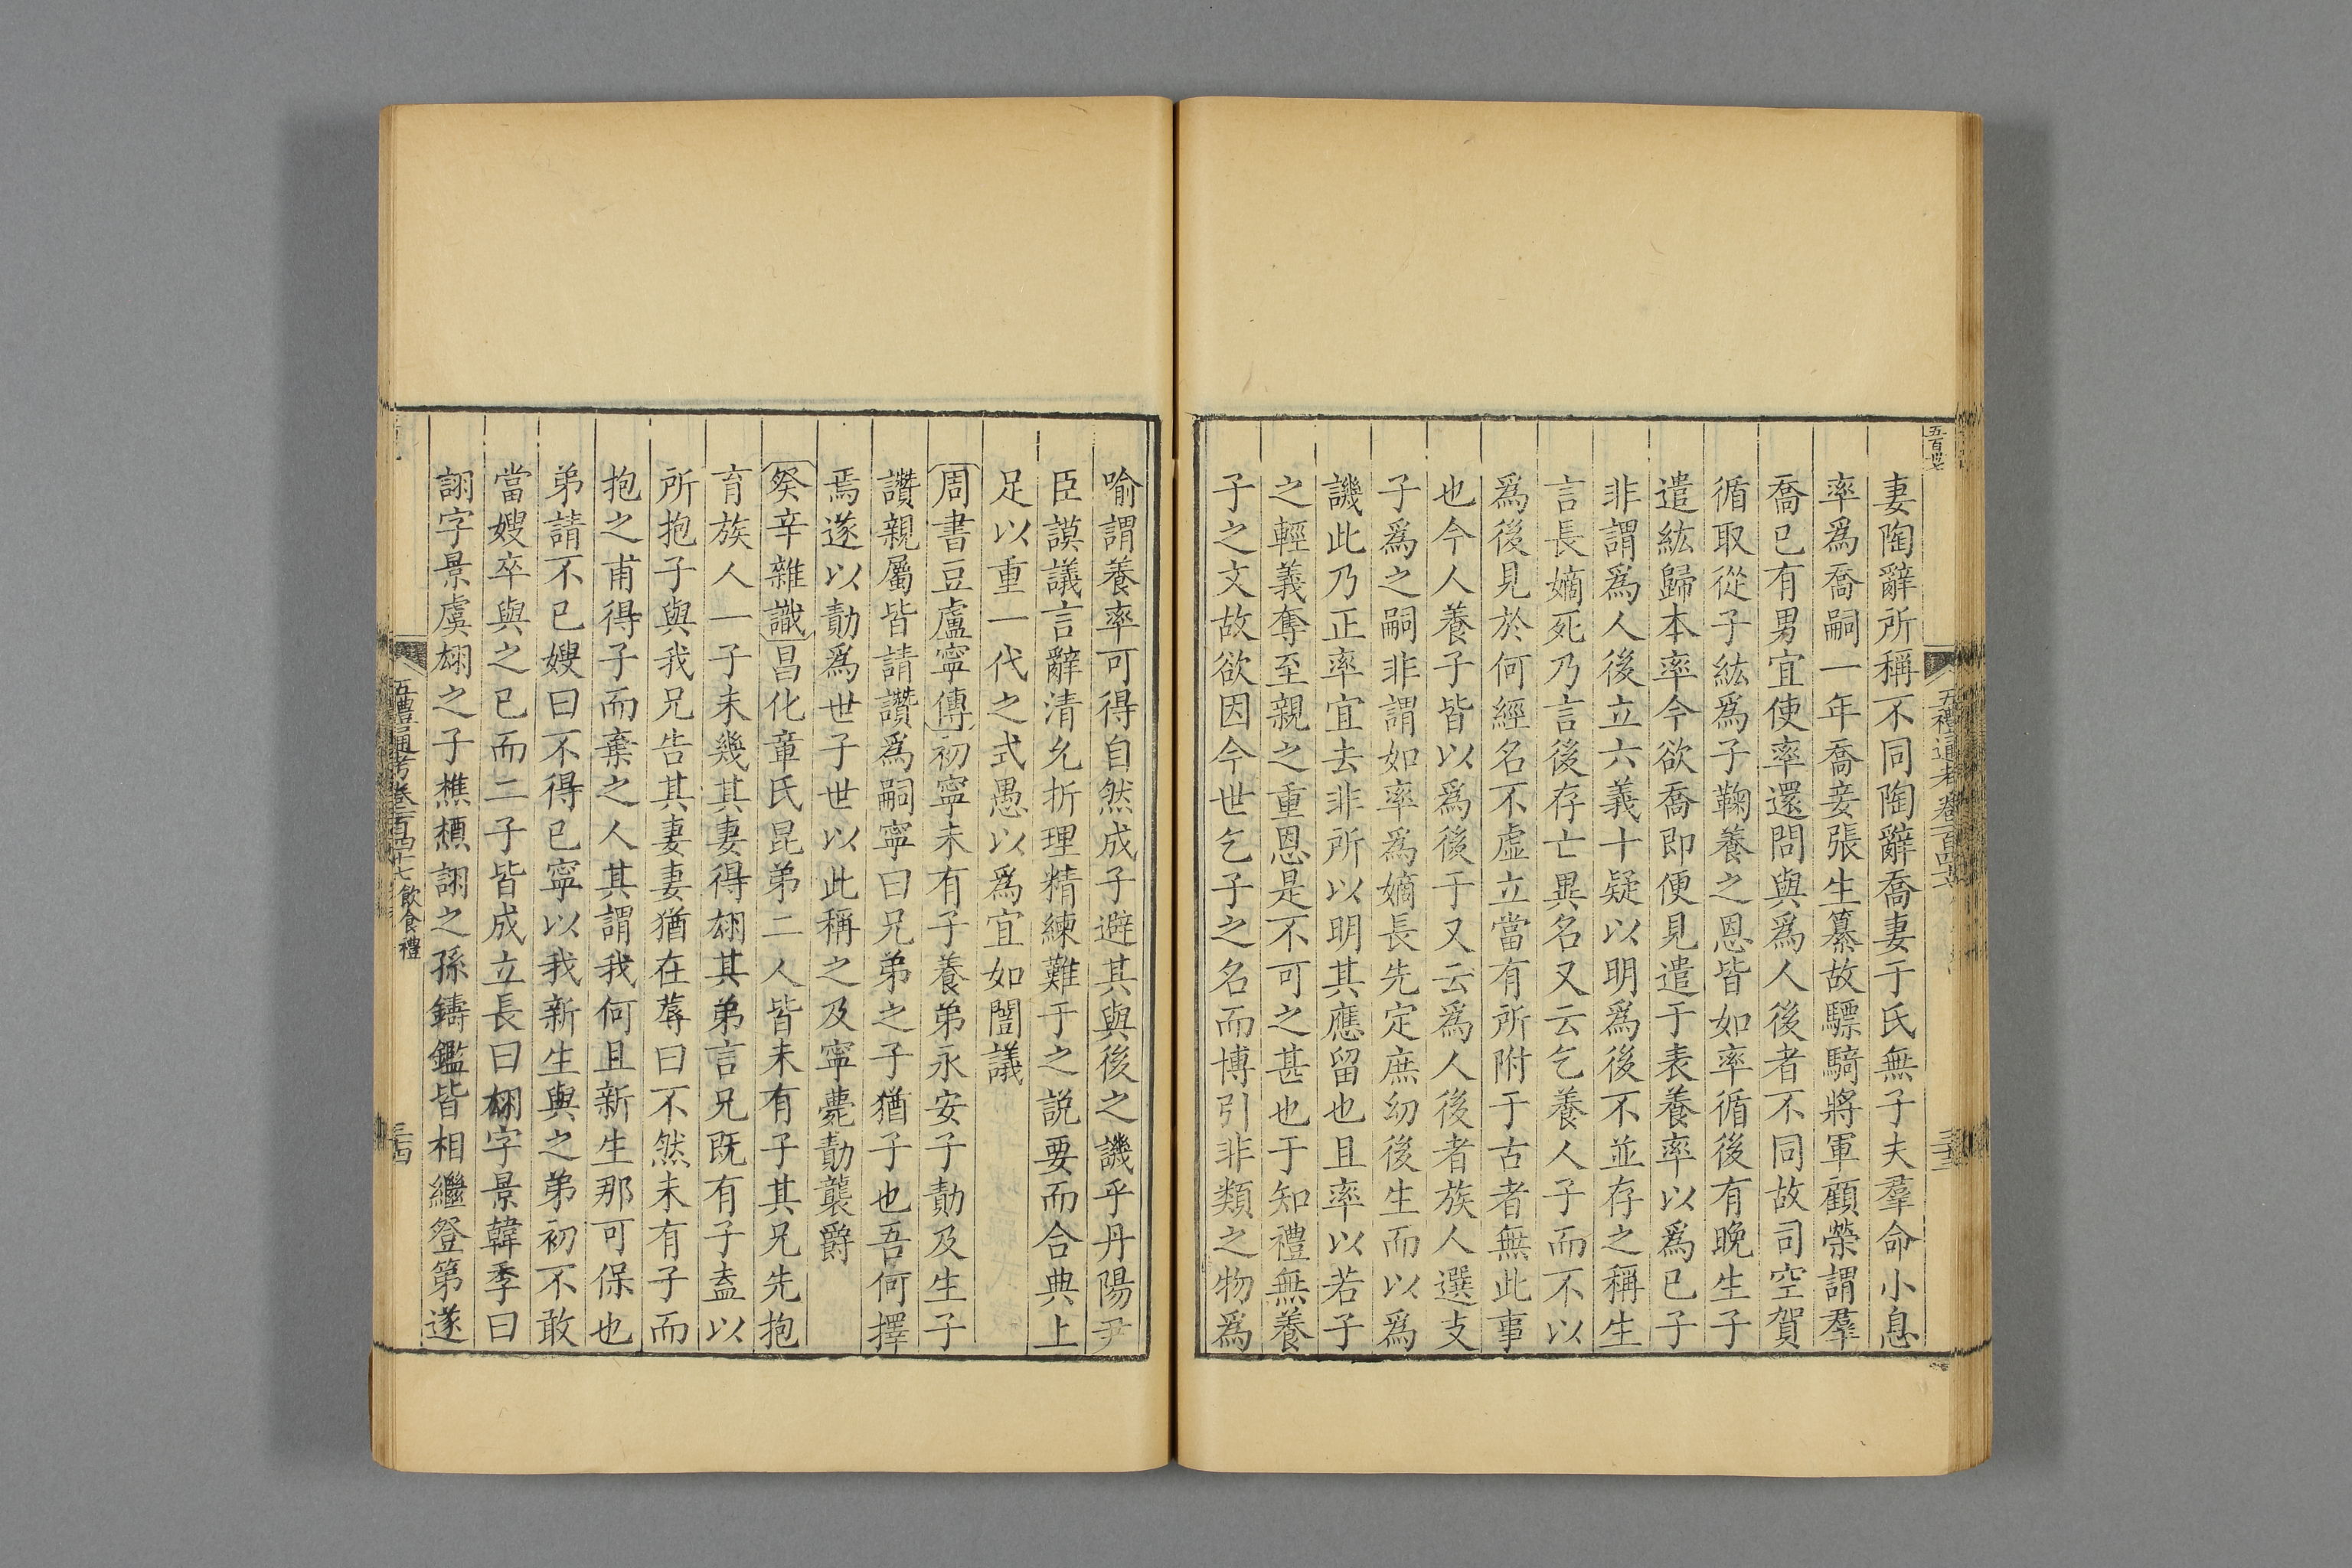 妻陶辭所稱不同陶辭喬妻于氏無子夫羣命小息
率爲喬嗣一年喬妾張生纂故驃騎將軍顧榮謂羣
喬已有男宜使率還問與爲人後者不同故司空賀
循取從子紘爲子鞠養之恩皆如率循後有晚生子
遣紘歸本率今欲喬即便見遣于表養率以爲已子
非謂爲人後立六義十疑以明爲後不並存之稱生
言長嫡死乃言後存亡異名又云乞養人子而不以
爲後見於何經名不虛立當有所附于古者無此事
也今人養子皆以爲後于又云爲人後者族人選支
子爲之嗣非謂如率爲嫡長先定庶幼後生而以爲
譏此乃正率宜去非所以明其應留也且率以若子
之輕義奪至親之重恩是不可之甚也于知禮無養
子之文故欲因今世乞子之名而博引非類之物爲
喻謂養率可得自然成子避其與後之譏乎丹陽尹
臣謨議言辭清允折理精練難于之説要而合典上
足以重一代之式愚以爲宜如誾議
周書豆盧寧傳初寧未有子養弟永安子勣及生子
讚親屬皆請讚爲嗣寧曰兄弟之子猶子也吾何擇
焉遂以勣爲世子世以此稱之及寧薨勣襲爵
癸辛雜識昌化章氏昆弟二人皆未有子其兄先抱
育族人一子未幾其妻得栩其弟言兄既有子盍以
所抱子與我兄告其妻妻猶在蓐曰不然未有子而
抱之甫得子而棄之人其謂我何且新生那可保也
弟請不已嫂曰不得已寧以我新生與之弟初不敢
當嫂卒與之已而二子皆成立長曰栩字景韓季曰
詡字景虞栩之子樵槱詡之孫鑄鑑皆相繼登第遂
五禮通考卷一百四十七 飲食禮
三四